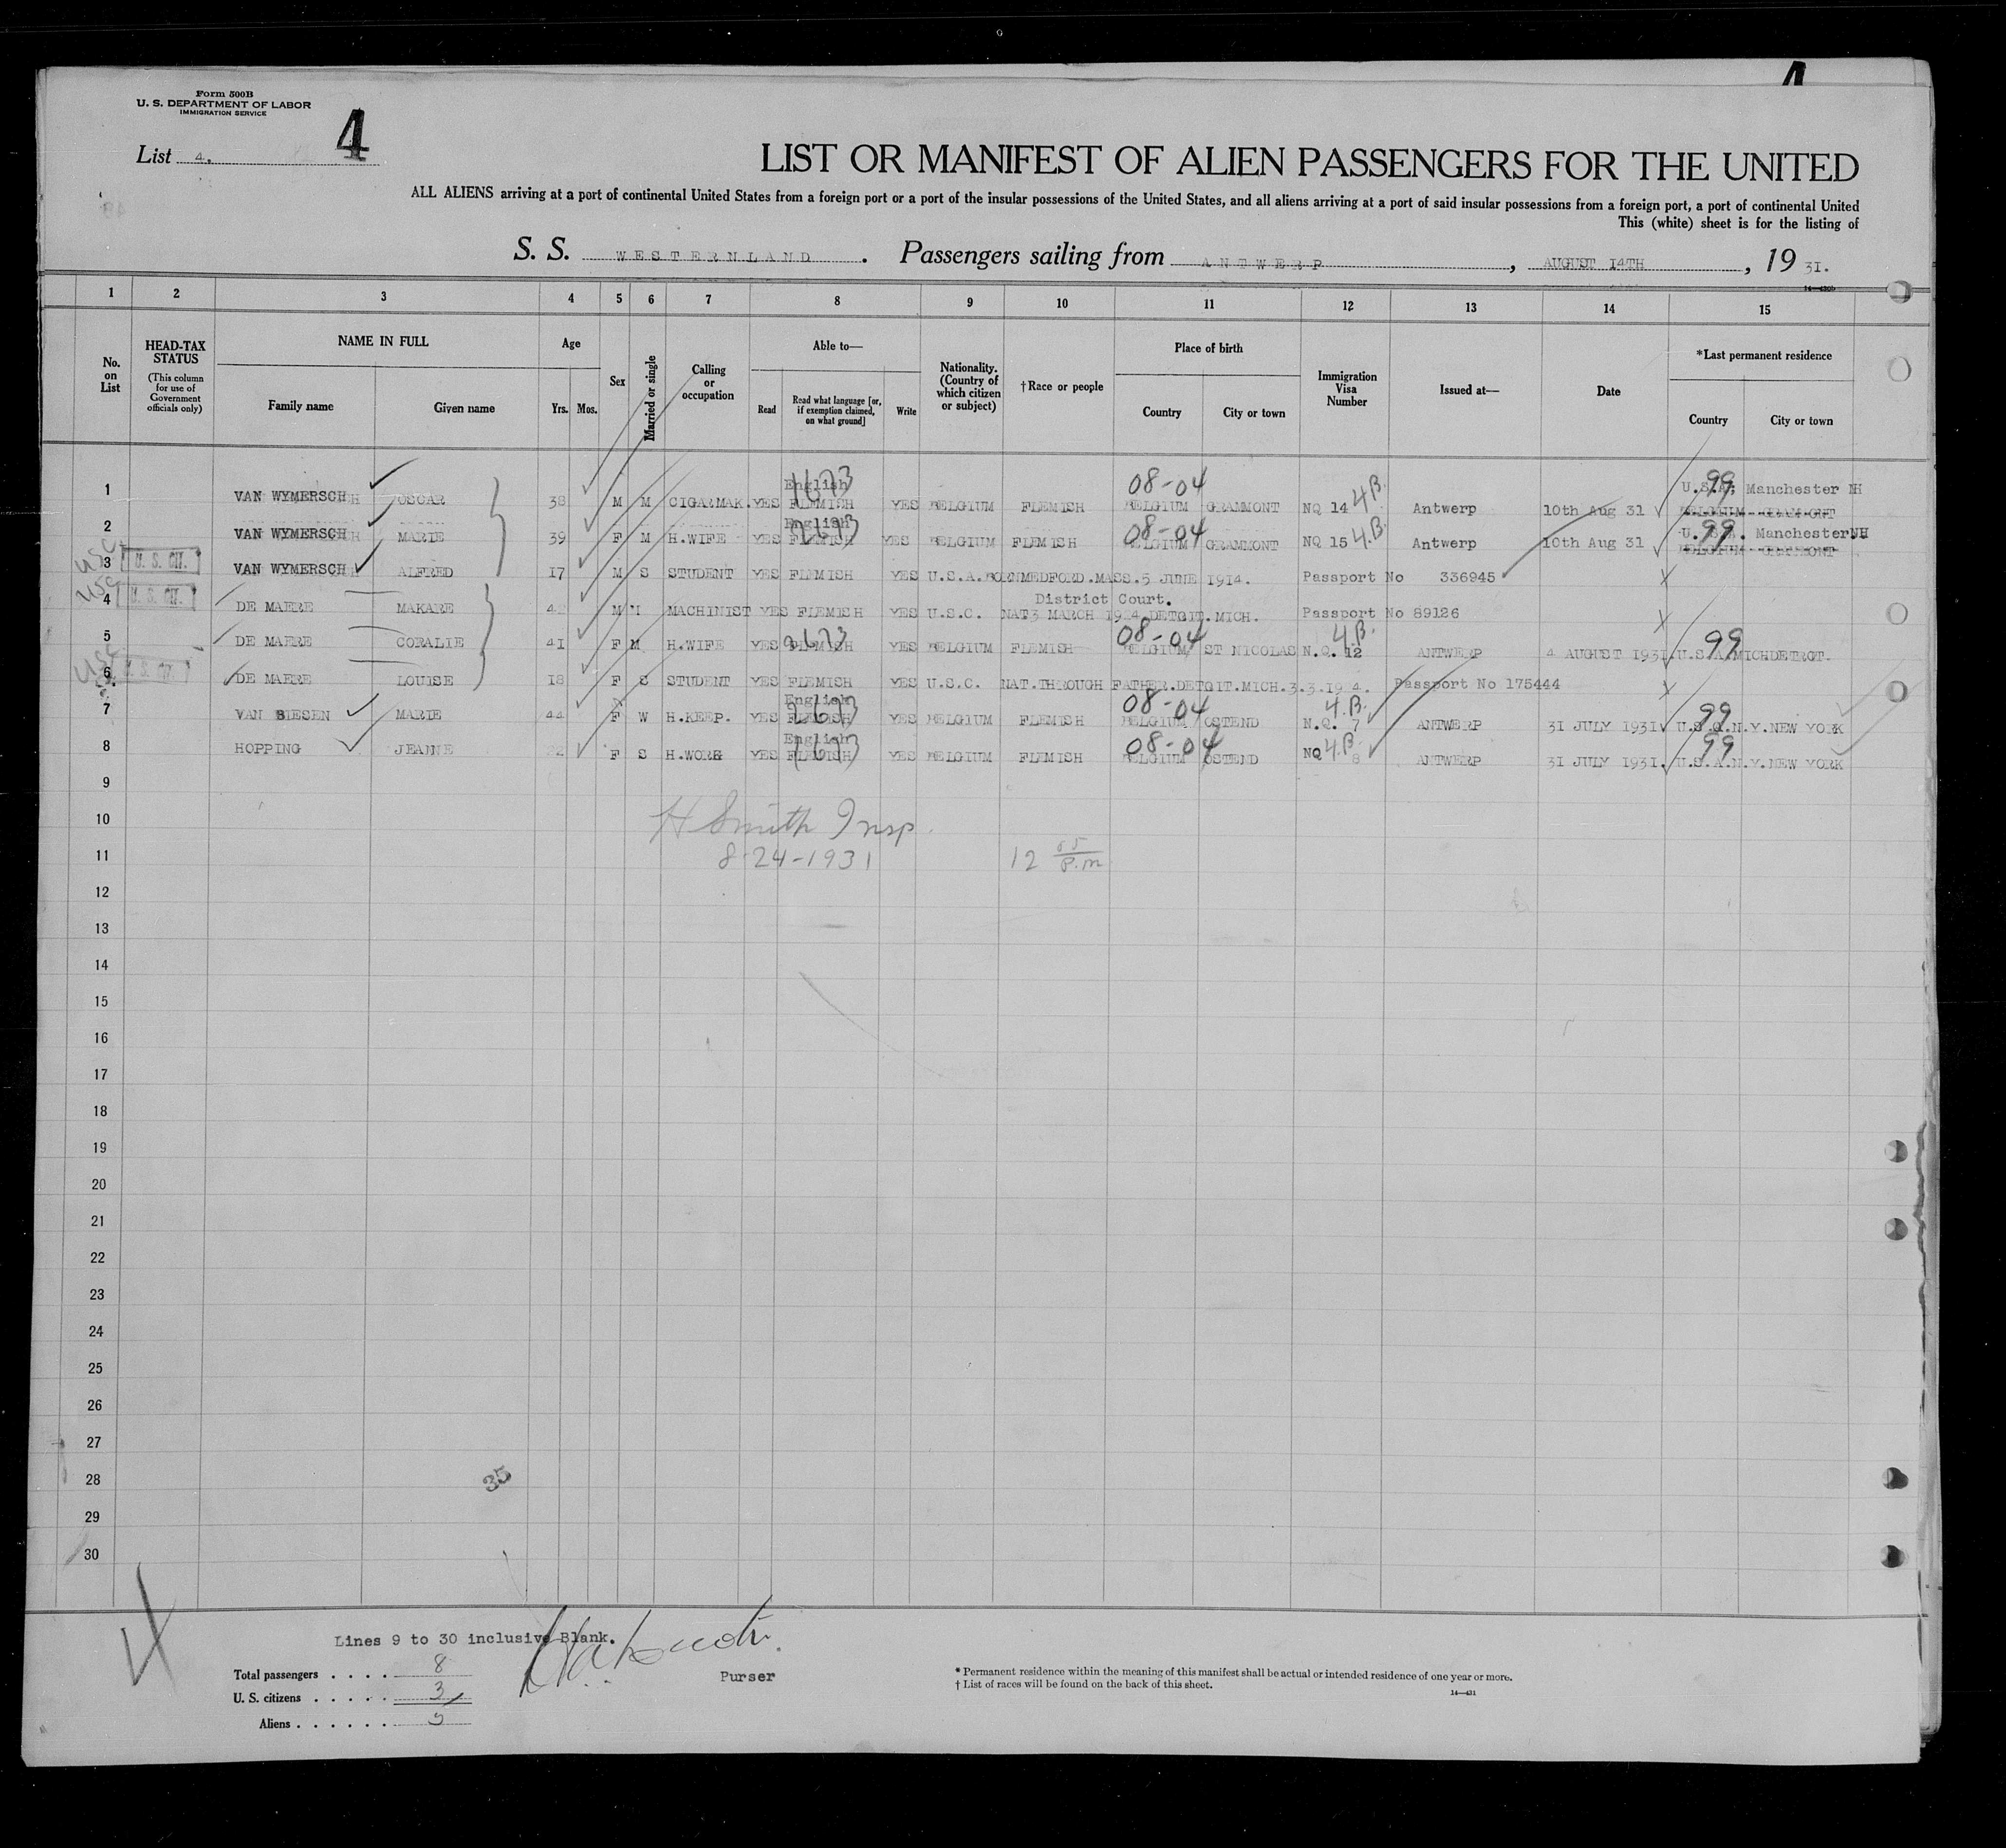 Form 500B
U. S. DEPARTMENT OF LABOR
IMMIGRATION SERVICE
4
List 4.
LIST OR MANIFEST OF ALIEN PASSENGERS FOR THE UNITED
ALL ALIENS arriving at a port of continental United States from a foreign port or a port of the insular possessions of the United States, and all aliens arriving at a port of said insular possessions from a foreign port, a port of continental United
This (white) sheet is for the listing of
S. S. WESTERNLAND. Passengers sailing from ANTWERP, AUGUST 14TH, 19 31.
1 2 3 4 5 6 7 8 9 10 11 12 13 14 15
No. on List
HEAD-TAX STATUS
(This column for use of Government officials only)
NAME IN FULL
Family name Given name
Age
Yrs. Mos.
Sex
Married or single
Calling or occupation
Able to—
Read Read what language [or, if exemption claimed, on what ground] Write
Nationality. (Country of which citizen or subject)
†Race or people
Place of birth
Country City or town
Immigration Visa Number
Issued at—
Date
*Last permanent residence
Country City or town
1 VAN WYMERSCH OSCAR 38 M M CIGARMAK. YES English FLEMISH YES BELGIUM FLEMISH 08-04 BELGIUM GRAMMONT NQ 14 4B. Antwerp 10th Aug 31 U.S.A. 99 Manchester NH BELGIUM GRAMMONT
2 VAN WYMERSCH MARIE 39 F M H.WIFE YES English FLEMISH YES BELGIUM FLEMISH 08-04 BELGIUM GRAMMONT NQ 15 4.B. Antwerp 10th Aug 31 U.S.A. 99 Manchester NH BELGIUM GRAMMONT
USC 3 U. S. CH. VAN WYMERSCH ALFRED 17 M S STUDENT YES FLEMISH YES U.S.A. BORN MEDFORD.MASS.5 JUNE 1914. Passport No 336945
USC 4 U. S. CH. DE MAERE MAKARE M M MACHINIST YES FLEMISH YES U.S.C. District Court. NAT.3 MARCH 1924 DETROIT.MICH. Passport No 89126
5 DE MAERE CORALIE 41 F M H.WIFE YES 2673 FLEMISH YES BELGIUM FLEMISH 08-04 BELGIUM ST NICOLAS N.Q. 12 4.B. ANTWERP 4 AUGUST 1931. U.S.A. 99 MICH DETROT.
USC 6 U. S. CH. DE MAERE LOUISE 18 F S STUDENT YES FLEMISH YES U.S.C. NAT.THROUGH FATHER.DETROIT.MICH.3.3.1924. Passport No 175444
7 VAN BIESEN MARIE 44 F W H.KEEP. YES English FLEMISH 2673 YES BELGIUM FLEMISH 08-04 BELGIUM OSTEND N.Q. 7 4.B. ANTWERP 31 JULY 1931 U.S.A. 99 N.Y.NEW YORK
8 HOPPING JEANNE 22 F S H.WORK YES English FLEMISH 1673 YES BELGIUM FLEMISH 08-04 BELGIUM OSTEND NQ 8 4.B ANTWERP 31 JULY 1931. U.S.A. 99 N.Y.NEW YORK
9
10 H Smith Insp.
11 8-24-1931 12 05 P.m
12
13
14
15
16
17
18
19
20
21
22
23
24
25
26
27
28 35
29
30
Lines 9 to 30 inclusive Blank.
Total passengers .... 8
U. S. citizens ..... 3
Aliens ...... 5
Purser
* Permanent residence within the meaning of this manifest shall be actual or intended residence of one year or more.
† List of races will be found on the back of this sheet.
14—431